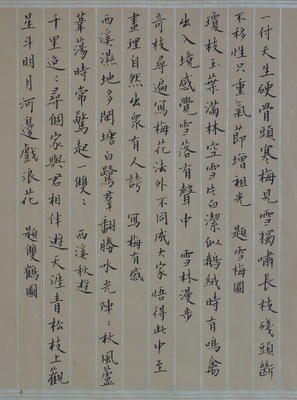 一付天生硬骨頭寒梅見雪獨嘯長枝殘頭斷
不移性只重氣節增祖光　題雪梅圖
瓊枝玉葉滿林空雪片白潔似鵝絨時有鳴禽
出入境感覺雪落有聲中　雪林漫步
奇枝尋遍寫梅花法外不同成大家悟得此中至
畫理自然出衆有人誇　寫梅有感
西溪濕地多閑塘白鷺羣翻勝水光陣〻秋風蘆
葦蕩時常驚起一雙〻　西溪秋遊
千里迢〻尋個家與君相伴遊天涯青松枝上觀
星斗明月河邊戲浪花　題雙鶴圖